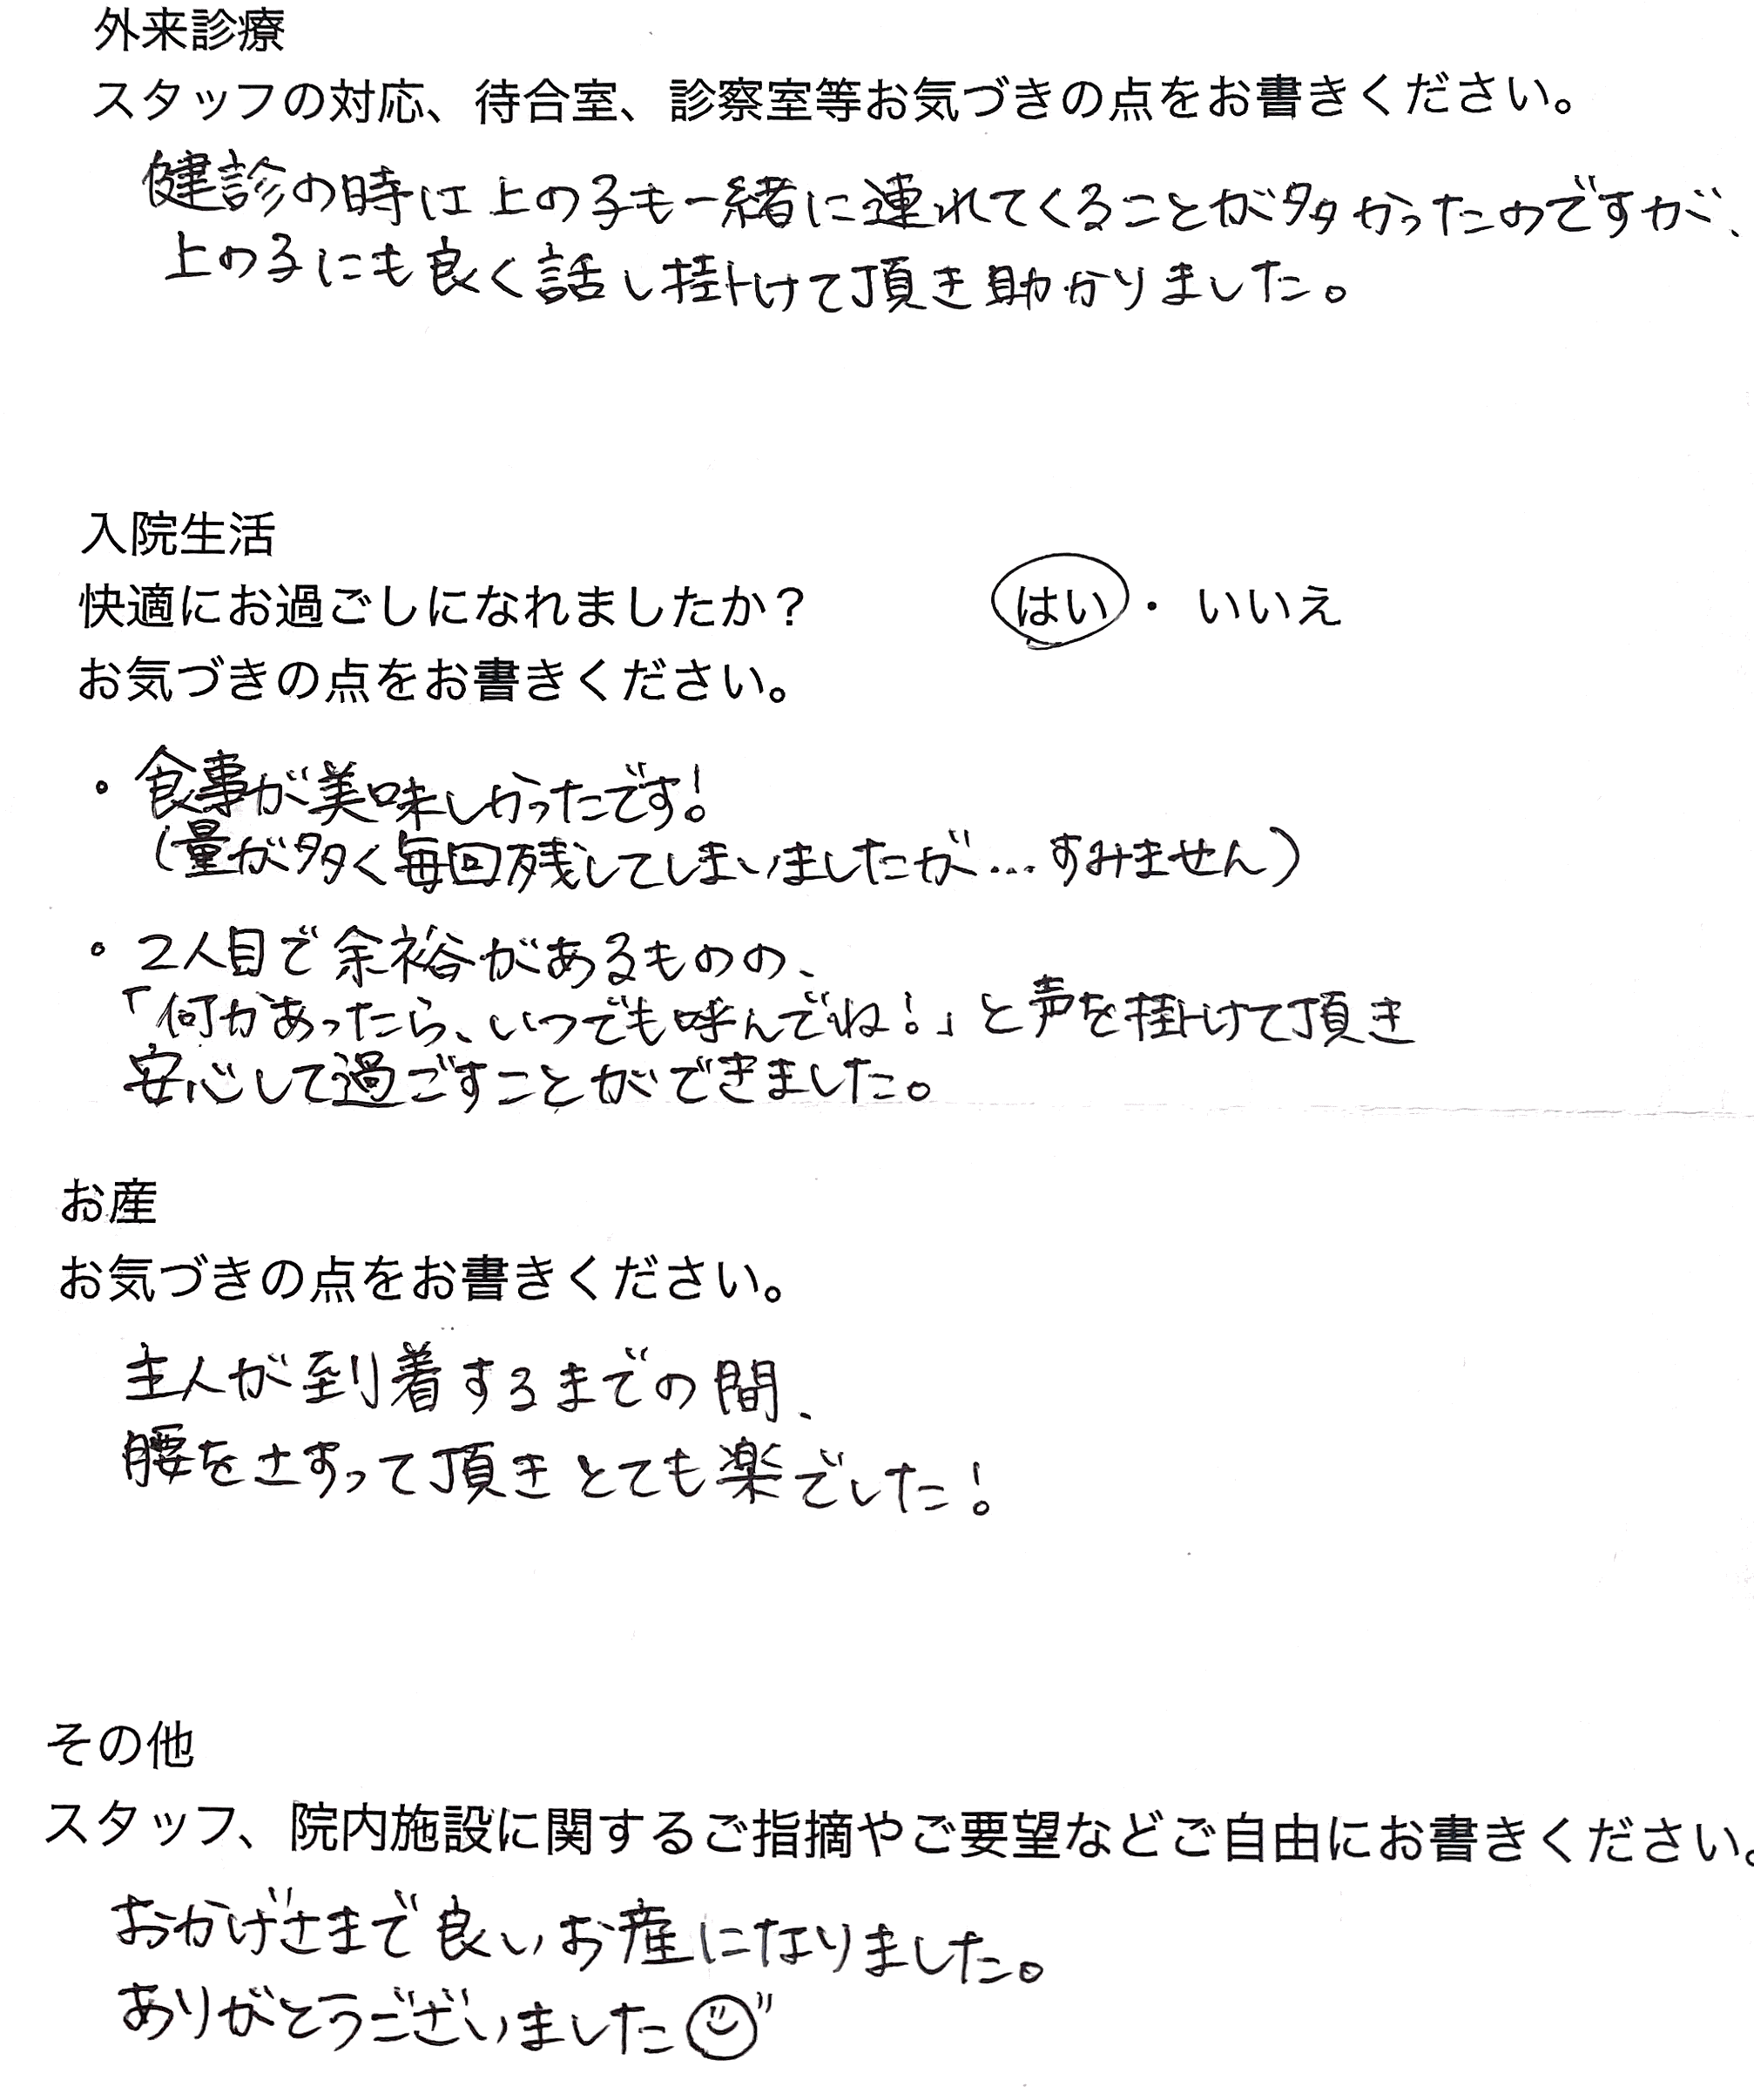 外来診療
スタッフの対応、待合室、診察室等お気づきの点をお書きください。
健診の時は上の子も一緒に連れてくることが多かったのですが、
上の子にも良く話し掛けて頂き助かりました。
入院生活
快適にお過ごしになれましたか？ はい ・ いいえ
お気づきの点をお書きください。
・食事が美味しかったです!
(量が多く毎回残してしまいましたが…すみません)
・2人目で余裕があるものの、
「何かあったら、いつでも呼んでね!」と声を掛けて頂き
安心して過ごすことができました。
お産
お気づきの点をお書きください。
主人が到着するまでの間、
腰をさすって頂きとても楽でした!
その他
スタッフ、院内施設に関するご指摘やご要望などご自由にお書きください。
おかげさまで良いお産になりました。
ありがとうございました